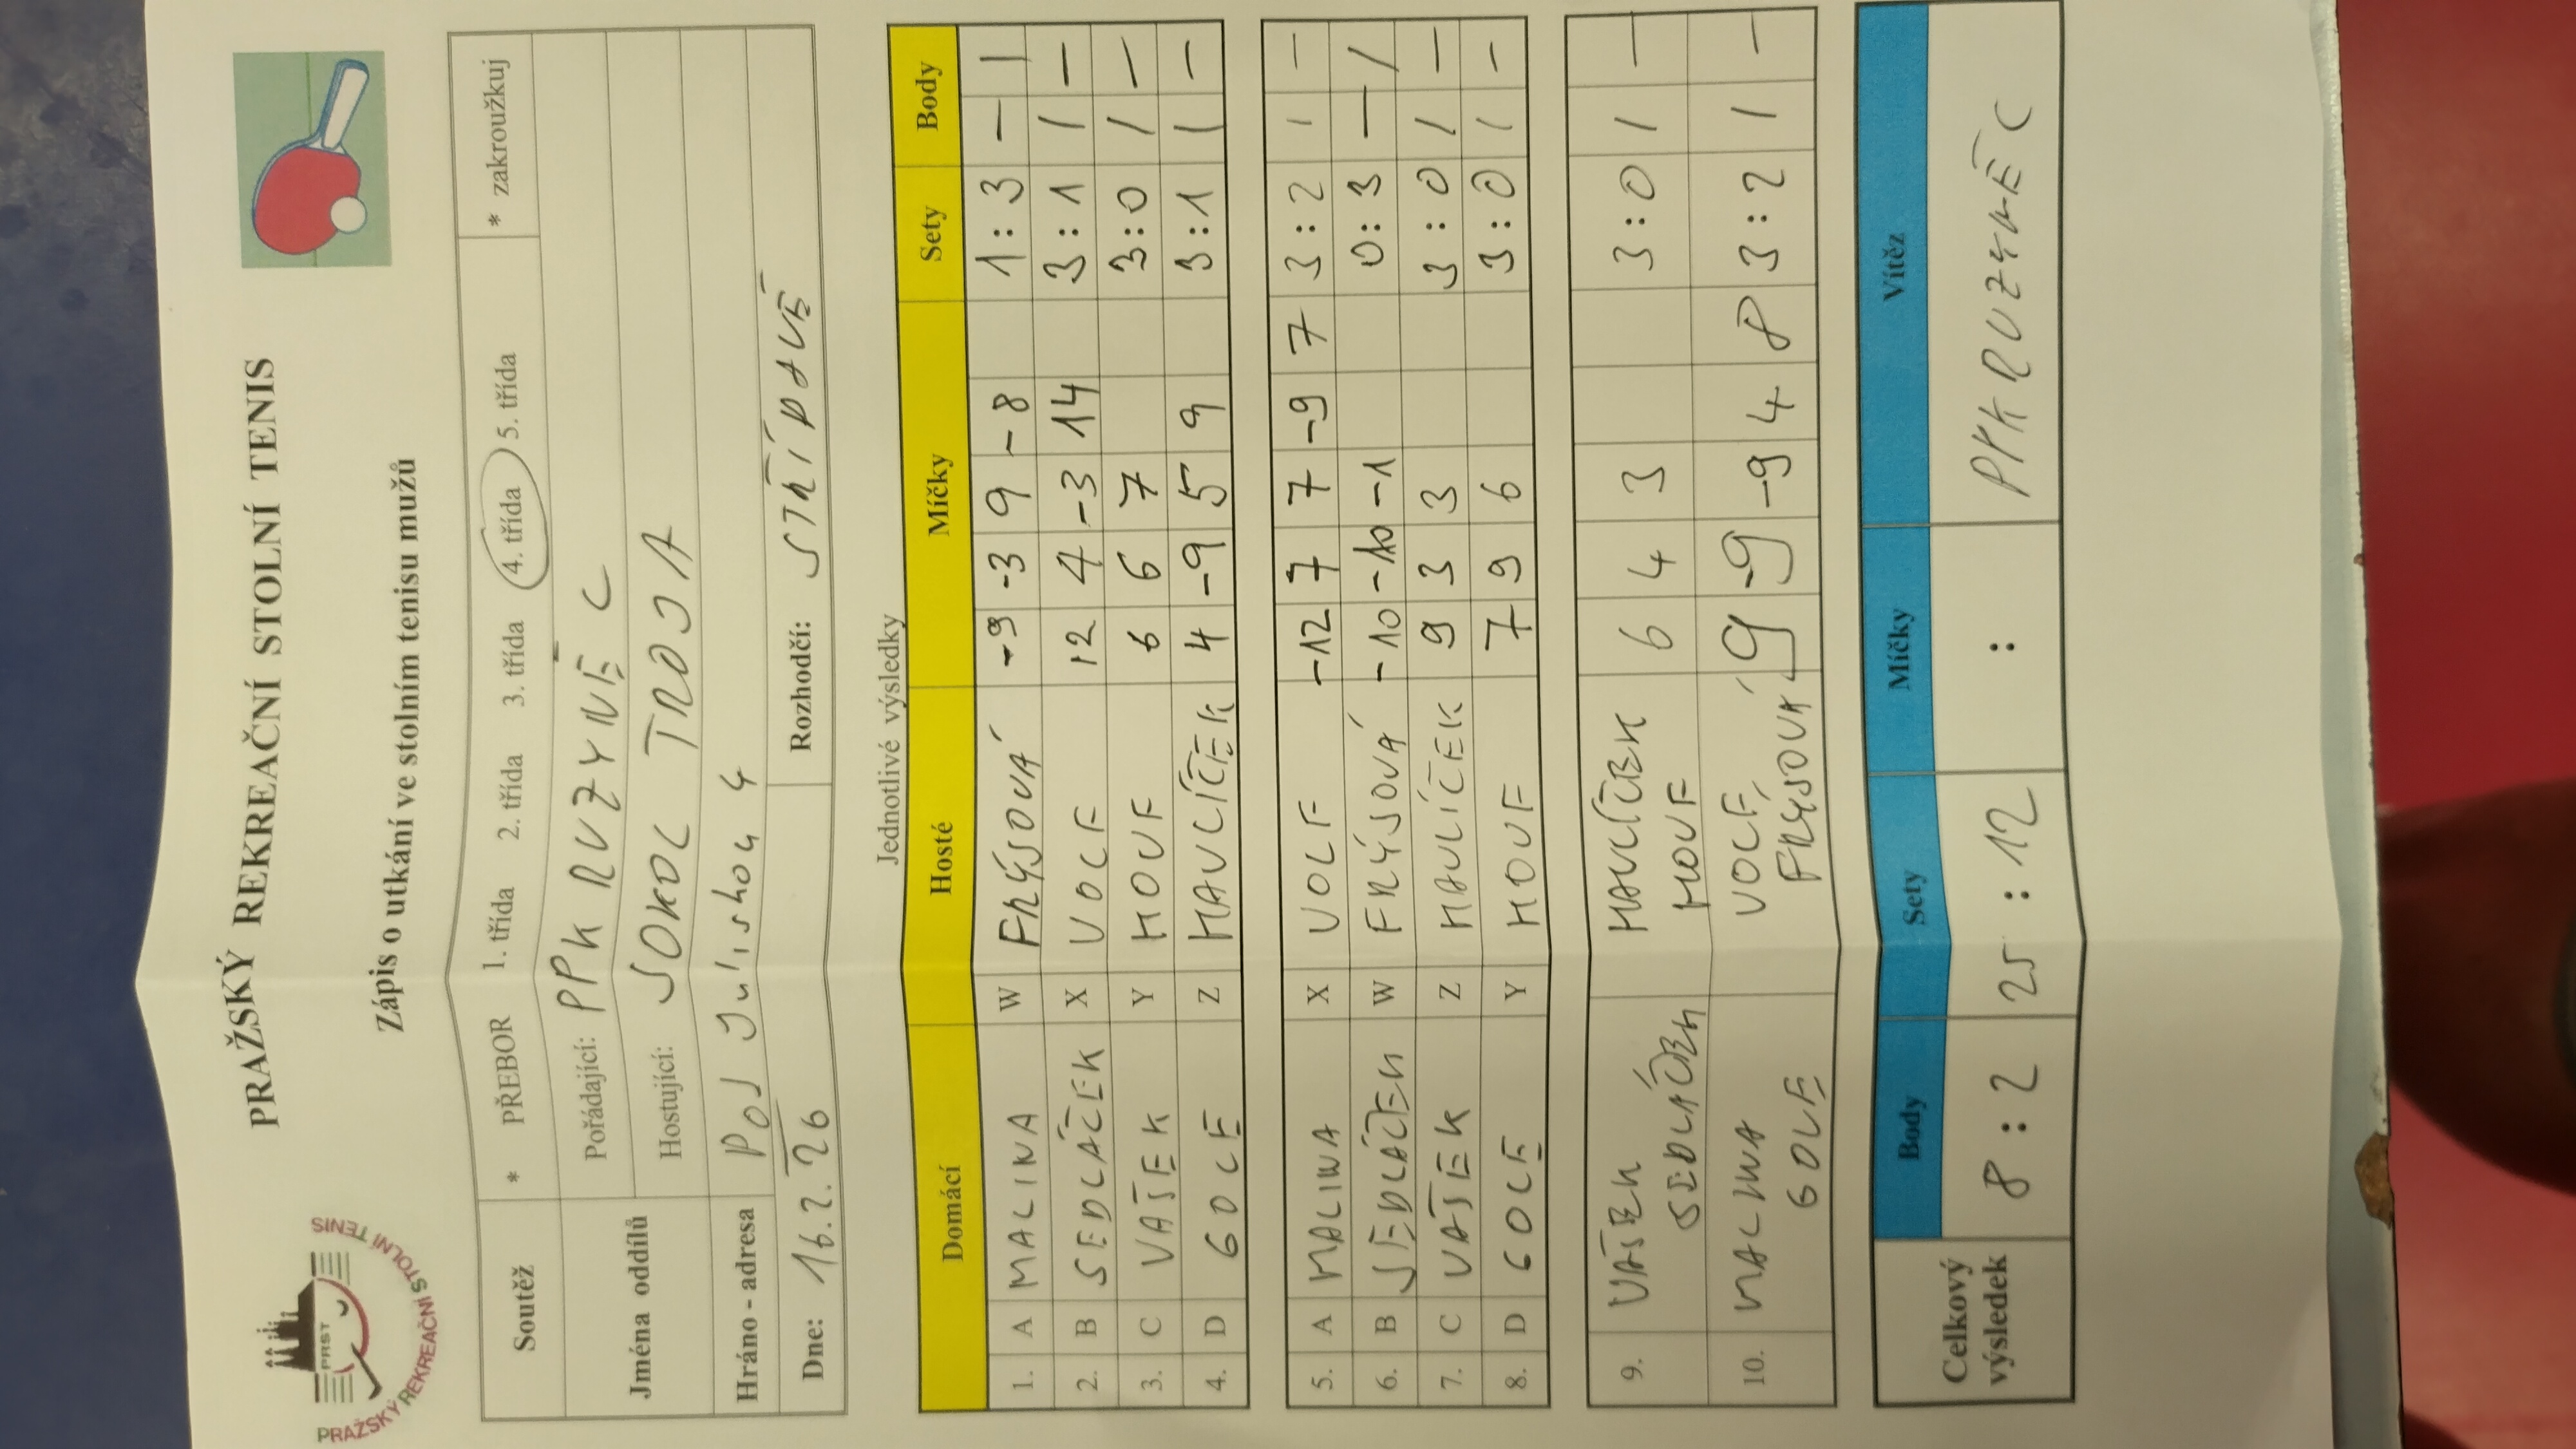 PRAŽSKÝ REKREAČNÍ STOLNÍ TENIS
PRST
PRAŽSKÝ REKREAČNÍ STOLNÍ TENIS
Zápis o utkání ve stolním tenisu mužů
Soutěž * PŘEBOR 1. třída 2. třída 3. třída 4. třída 5. třída * zakroužkuj
Jména oddílů Pořádající: PPK RUZYNĚ C
Hostující: SOKOL TROJA
Hráno - adresa Pod Juliskou 4
Dne: 16.2.26 Rozhodčí: STŘÍDAVĚ
Jednotlivé výsledky
Domácí Hosté Míčky Sety Body
1. A MALINA W FRÝSOVÁ -9 -3 9 -8 1:3 — |
2. B SEDLÁČEK X VOLF 12 4 -3 14 3:1 / —
3. C VAŠEK Y HOUF 6 6 7 3:0 / —
4. D GOLE Z HAVLÍČEK 4 -9 5 9 3:1 / —
5. A MALINA X VOLF -12 7 7 -9 7 3:2 / —
6. B SEDLÁČEK W FRÝSOVÁ -10 -10 -1 0:3 — /
7. C VAŠEK Z HAVLÍČEK 9 3 3 3:0 / —
8. D GOLE Y HOUF 7 9 6 3:0 / —
9. VAŠEK HAVLÍČEK 6 4 3 3:0 / —
SEDLÁČEK HOUF
10. MALINA VOLF, 9 -9 -9 4 8 3:2 / —
GOLE FRÝSOVÁ
Celkový výsledek Body Sety Míčky Vítěz
8 : 2 25 : 12 : PPK RUZYNĚ C